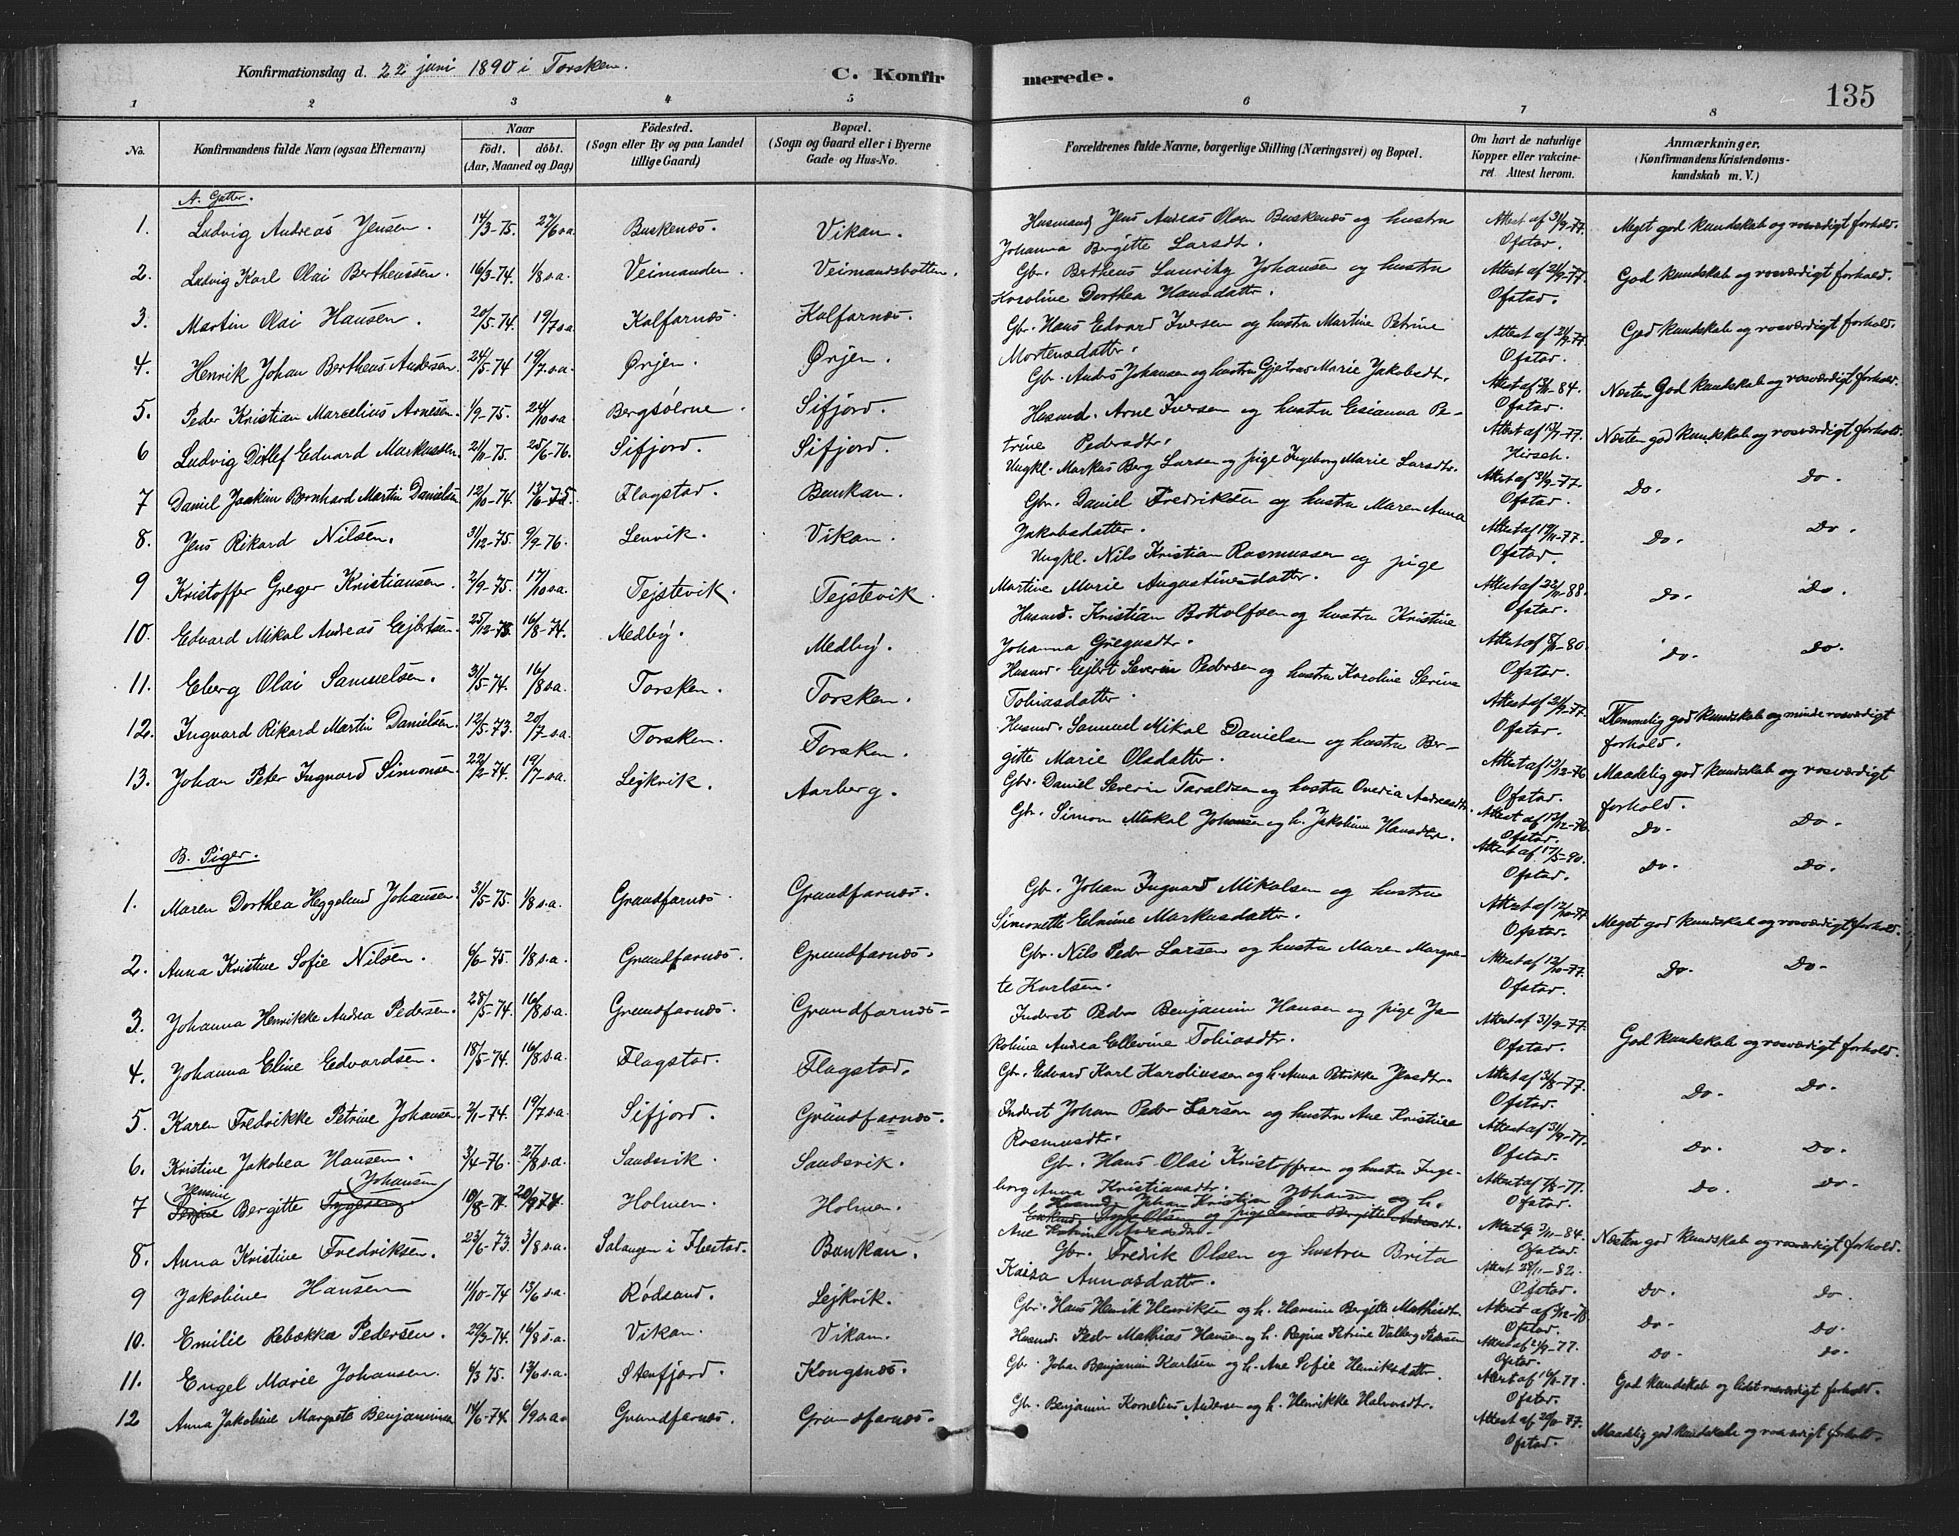 Konfirmationsdag d. 22 juni 1890 i Torsken.
C. Konfirmerede.
135
1 2 3 4 5 6 7 8
No.
Konfirmandens fulde Navn (ogsaa Efternavn)
Naar
født. døbt.
(Aar, Maaned og Dag)
Fødested.
(Sogn eller By og paa Landet
tillige Gaard)
Bopæl.
(Sogn og Gaard eller i Byerne
Gade og Hus-No.
Forældrenes fulde Navne, borgerlige Stilling (Næringsvei) og Bopæl.
Om havt de naturlige
Kopper eller vakcine-
ret. Attest herom.
Anmærkninger.
(Konfirmandens Kristendoms-
kundskab m. V.)
A. Gutter.
1. Ludvig Andreas Jensen. 14/3-75. 27/6 s.a. Buskenæs. Vikan. Husmand Jens Andreas Olsen Buskenæs og hustru Johanna Birgitte Larsdt. Attest af 31/9-77. Ofstad. Meget god kundskab og rosværdigt forhold.
2. Ludvig Karl Olai Bertheussen. 16/3-74. 1/8 s.a. Veimanden. Veimandsbotten. Gbr. Bertheus Lauritz Johansen og hustru Karoline Dorthea Hansdatter. Attest af 21/9-77. Ofstad. God kundskab og rosværdigt forhold.
3. Martin Olai Hansen. 20/5-74. 19/7 s.a. Kalfarnæs. Kalfarnæs. Gbr. Hans Edvard Iversen og hustru Martine Petrine Mortensdatter. Attest af 21/9-77. Ofstad. God kundskab og rosværdigt forhold.
4. Henrik Johan Bertheus Andersen. 24/5-74 19/7 s.a. Ørjen. Ørjen. Gbr. Anders Johansen og hustru Gjetras Marie Jakobsdt. Attest af -84. Ofstad. Næsten God kundskab og rosværdigt forhold.
5. Peder Kristian Marcelius Arnesen. 1/9-75. 24/10 s.a. Bergsøerne. Sifjord. Husmd. Arne Iversen og hustru Elisianna Petrine Pedersdt. Attest af -77. Hirsch. Næsten god kundskab og rosværdigt forhold.
6 Ludvig Ditlef Edvard Markussen. 21/11-75. 25/6-76. Sifjord. Sifjord. Ungkl. Markus Berg Larsen og pige Ingeborg Marie Larsdtr. Attest af 31/9-77. Ofstad. Do. Do.
7 Daniel Joakim Bernhard Martin Danielsen 12/10-74. 13/6-75. Flagstad. Baukan. Gbr. Daniel Fredriksen og hustru Maren Anna Jakobsdatter. Attest af 19/11-77. Ofstad. Do. Do.
8. Jens Rikard Nilsen. 31/12-75. 9/9-76. Lenvik. Vikan. Ungkl. Nils Kristian Rasmussen og pige Martine Marie Augustinesdatter. Attest af 22/11-88. Ofstad. Do. Do.
9 Kristoffer Greger Kristiansen. 2/9-75. 17/10 s.a. Tejstevik. Tejstevik. Husmd. Kristian Bottolfsen og hustru Kristine Johanna Gregusdt. Attest af -80. Ofstad. Do. Do.
10. Edvard Mikal Andreas Ejlertsen. 25/12-73. 16/8-74. Medby. Medby. Husmd. Ejlert Severin Pedersen og hustru Karoline Serine Tobiasdatter. Attest af 21/9-77. Ofstad. Temmelig god kundskab og mindre rosværdigt forhold.
11. Elberg Olai Samuelsen. 31/5-74. 16/8 s.a. Torsken. Torsken. Husmd. Samuel Mikal Danielsen og hustru Bergitte Marie Olsdatter. Attest af 13/12-76 Ofstad. Maadelig god kundskab og rosværdigt forhold.
12. Ingvard Rikard Martin Danielsen. 12/5-73. 20/7 s.a. Torsken. Torsken. Gbr. Daniel Severin Taraldsen og hustru Overia Andreasdt. Attest af 13/12-76 Ofstad. Do. Do.
13. Johan Peter Ingvard Simonsen. 22/2-74. 19/7 s.a. Lejkvik. Aarberg. Gbr. Simon Mikal Johansen og h. Jakobine Hansdtr. Attest af 17/5-90. Ofstad. Do. Do.
B. Piger.
1. Maren Dorthea Heggelund Johansen. 31/5-75. 1/8 s.a. Grundfarnæs. Grundfarnæs. Gbr. Johan Ingvard Mikalsen og hustru Simonette Elmine Markusdatter. Attest af 12/10-77 Ofstad. Meget god kundskab og rosværdigt forhold.
2. Anna Kristine Sofie Nilsen. 6/6-75. 1/8 s.a. Grundfarnæs. Grundfarnæs. Gbr. Nils Peder Larsen og hustru Maren Margrete Karlsen. Attest af 12/10-77. Ofstad. Do. Do.
3. Johanna Henrikke Andrea Pedersen. 28/5-74. 16/8 s.a. Grundfarnæs. Grundfarnæs. Inderst Peder Benjamin Hansen og pige Jakobine Andrea Ellevine Tobiasdtr. Attest af 31/9-77. Ofstad. God kundskab og rosværdigt forhold.
4. Johanna Eline Edvardsen. 18/5-74. 16/8 s.a. Flagstad. Flagstad. Gbr. Edvard Karl Karoliussen og h. Anna Petrikke Jensdtr. Attest af 31/8-77. Ofstad. Do. Do.
5. Karen Fredrikke Petrine Johansen. 2/1-74. 19/7 s.a. Sifjord. Grundfarnæs. Inderst Johan Peder Larsen og hustru Ane Kristine Rasmusdtr. Attest af 31/9-77. Ofstad. Do. Do.
6. Kristine Jakobea Hansen. 3/4-76. 27/8 s.a. Sandsvik. Sandsvik. Gbr. Hans Olai Kristoffersen og hustru Ingeborg Anna Kristiansdt. Attest af -77. Ofstad. Do. Do.
7 Jensine Bergitte Johansen 10/8-74. 20/9 74. Holmen. Holmen. Husmd. Johan Kristian Johansen og h. Ane Katrine Attest af 2/11-84. Ofstad. Næsten god kundskab og rosværdigt forhold.
8. Anna Kristine Fredriksen. 23/6-73. 3/8 s.a. Salangen i Ibestad. Baukan. Gbr. Fredrik Olsen og hustru Brita Kaisa Annasdatter. Attest 28/11-82. Ofstad. Do. Do.
9 Jakobine Hansen 11/10-74 13/6 s.a. Rødsand. Lejkvik. Gbr. Hans Henrik Henriksen og h. Hansine Bergitte Mathisdt. Attest af Ofstad. Do. Do.
10. Emilie Rebekka Pedersen. 29/3-74. 16/8 s.a. Vikan. Vikan. Husmd. Peder Mathias Hansen og h. Regine Petrine Valberg Pedersen Attest af 21/9-77. Ofstad. Do. Do.
11. Engel Marie Johansen. 6/3 75. 13/6 s.a. Stenfjord. Kongsnæs. Gbr. Johan Benjamin Karlsen og h. Ane Sofie Henriksdatter. Attest af -77. Ofstad. God kundskab og lidet rosværdigt forhold.
12 Anna Jakobine Margrete Benjaminsen 14/6-74. 6/9 s.a. Grundfarnæs. Grundfarnæs. Gbr. Benjamin Kornelius Andersen og h. Henrikke Halvorsdtr. Attest af 20/11-77. Ofstad. Maadelig god kundskab og rosværdigt forhold.